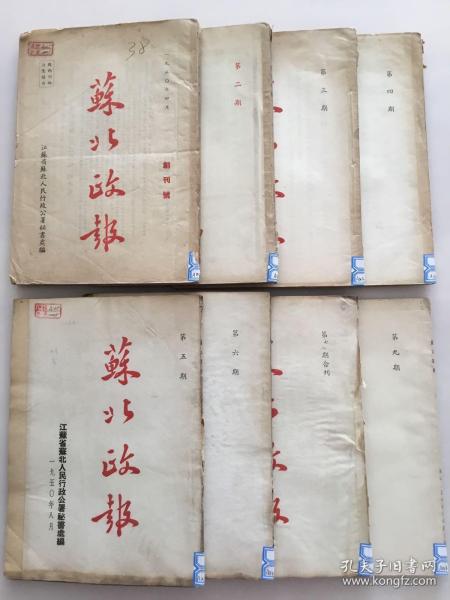 38
一九五〇年四月
創刊號
蘇北政報
江蘇省蘇北人民行政公署祕書處編
第二期
第三期
第四期
第五期
蘇北政報
江蘇省蘇北人民行政公署祕書處編
一九五〇年八月
第六期
期合刊
第九期
孔夫子旧书网
www.kongfz.com